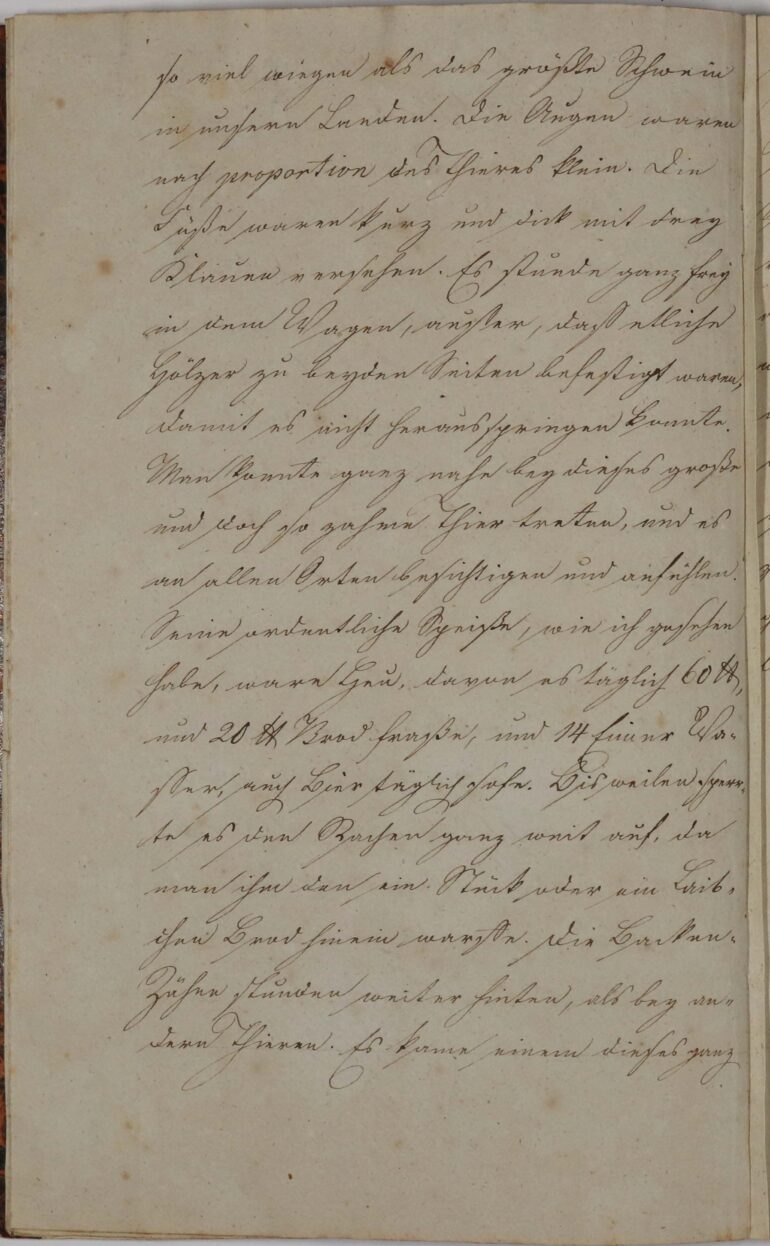 so viel wiegen als das größte Schwein
in unsern Landen. Die Augen waren
nach proportion des Thieres klein. Die
Füße waren kurz und dick mit drey
Klauen versehen. Es stunde ganz frey
in dem Wagen, ausser, dass etliche
Hölzer zu beyden Seiten befestigt waren,
damit es nicht herausspringen konnte.
Man konnte ganz nahe bey dieses große
und doch so zahme Thier tretten, und es
an allen Orten besichtigen und anfühlen.
Seine ordentliche Speiße, wie ich gesehen
habe, ware Heu, davon es täglich 60 ℔,
und 20 ℔ Brod fraße, und 14 Eimer Wa-
sser, auch Bier täglich sofe. Bisweilen sperr-
te es den Rachen ganz weit auf, da
man ihm den ein Stück oder ein Laib-
chen Brod hinein warffe. Die Backen-
Zähne stunden weiter hinten, als bey an-
dern Thieren. Es kame einem dieses ganz